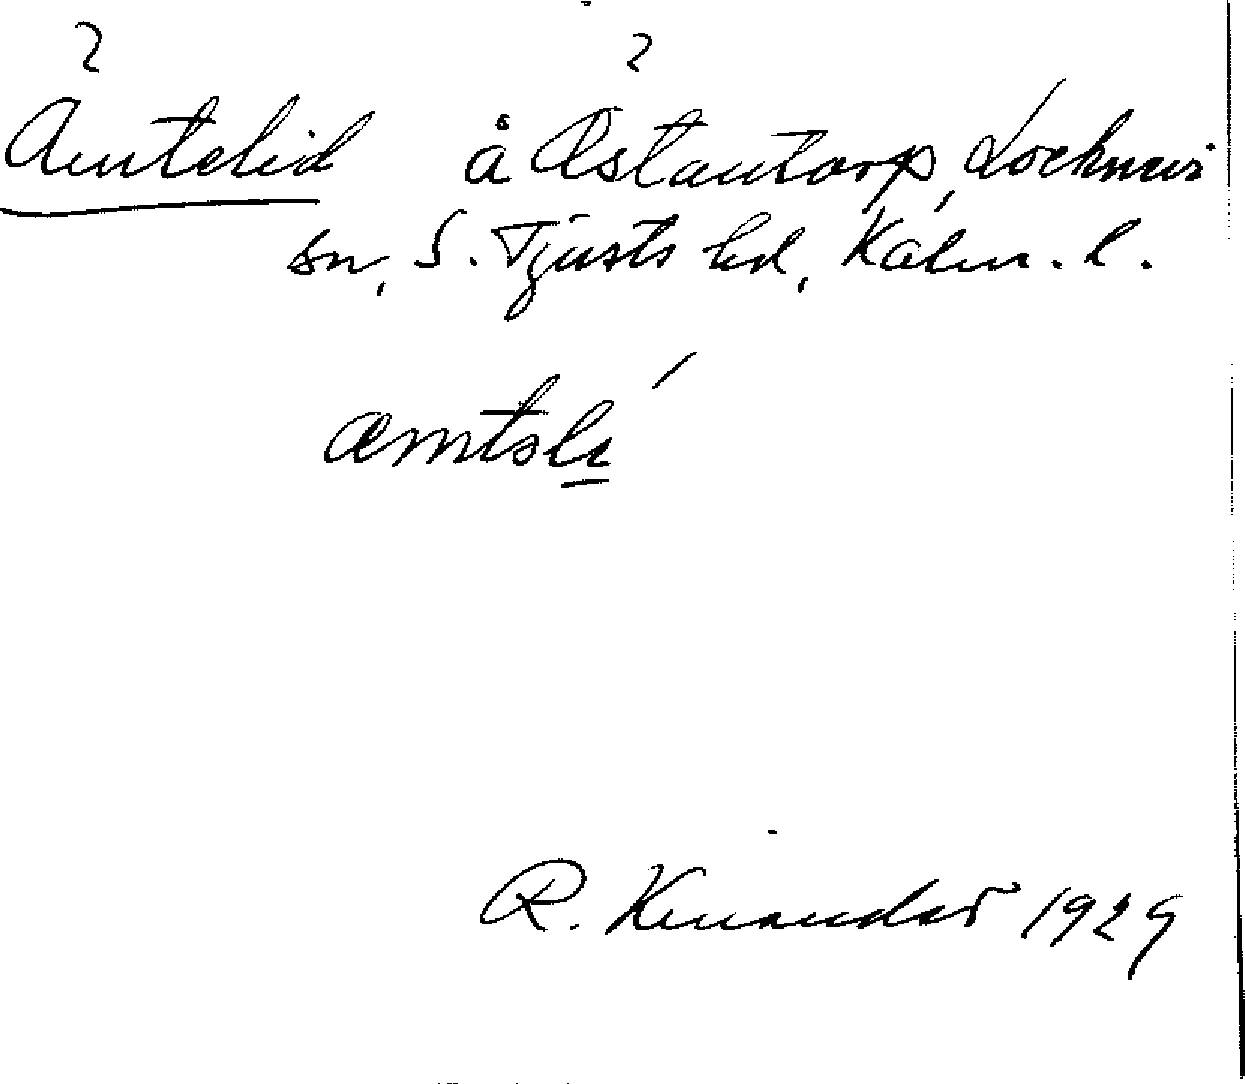 Ämtelid å Östantorp, Locknevi
sn, S. Tjusts hd, Kalm. l.
æmtəli ́
R. Kinander 1929